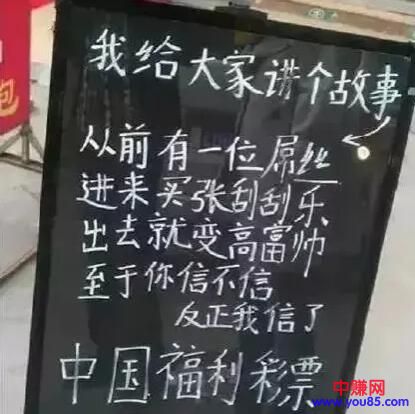 我给大家讲个故事
从前有一位屌丝
进来买张刮刮乐
出去就变高富帅
至于你信不信
反正我信了
中国福利彩票
包
中赚网
www.you85.com